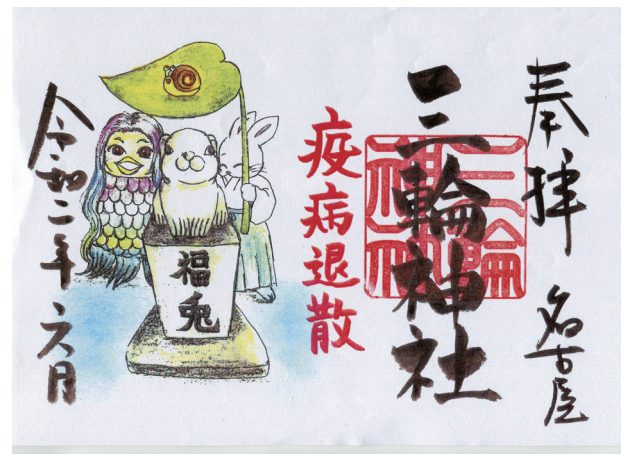 奉拝
名古屋
三輪神社
三輪神社
疫病退散
福兎
令和二年六月